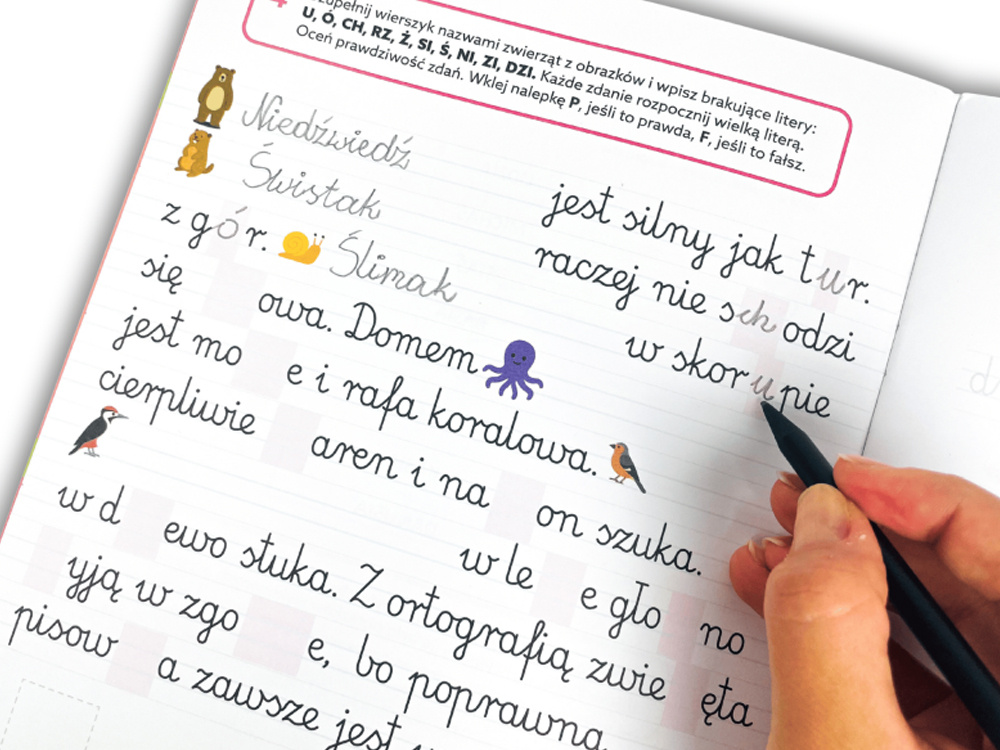 wierszyk nazwami zwierząt z obrazków i wpisz brakujące litery:
U, Ó, CH, RZ, Ż, SI, Ś, NI, ZI, DZI. Każde zdanie rozpocznij wielką literą.
Oceń prawdziwość zdań. Wklej nalepkę P, jeśli to prawda, F, jeśli to fałsz.
Niedźwiedź jest silny jak tur.
Świstak raczej nie schodzi
z gór. Ślimak w skorupie
się owa. Domem
jest mo e i rafa koralowa.
cierpliwie aren i na on szuka.
w le e gło no
w d ewo stuka. Z ortografią zwie ęta
yją w zgo e, bo poprawna
pisow a zawsze jest